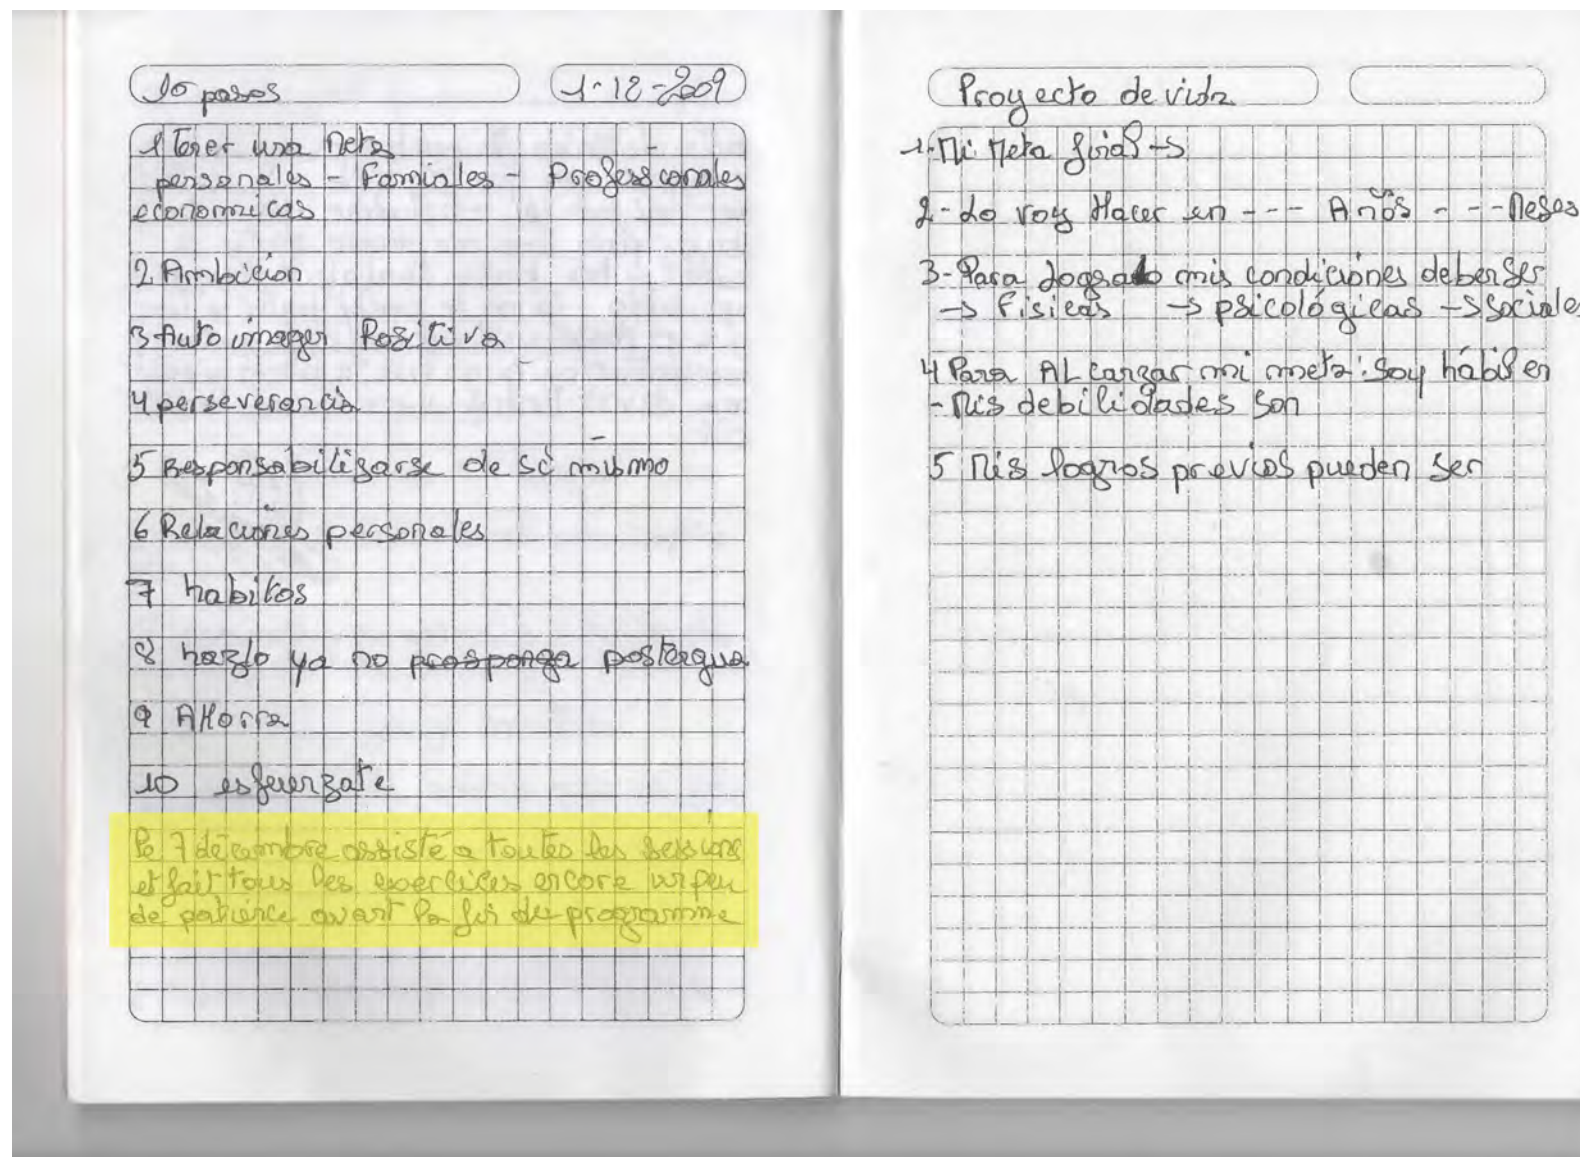 10 pasos
1-12-2009
1 Tener una Meta
personales - Familales - Professionales
economicas
2 Ambicion
3 Auto imagen Positiva
4 perseverancia
5 Responsabilizarse de si mismo
6 Relaciones personales
7 habitos
8 hazlo ya no prosponga postergua
9 AHorra
10 esfuerzate
le 7 décembre assisté a toutes les sessions
et fait tous les exercices encore un peu
de patience avant la fin du programme
Proyecto de vida
1- Mi Meta final →
2 - Lo voy Hacer en --- Años --- Meses
3 - Para Lograrlo mis condiciones deben Ser
→ Fisicas → psicológicas → Sociales
4 Para ALcanzar mi meta : Soy hábil en
- Mis debilidades son
5 Mis logros previos pueden ser